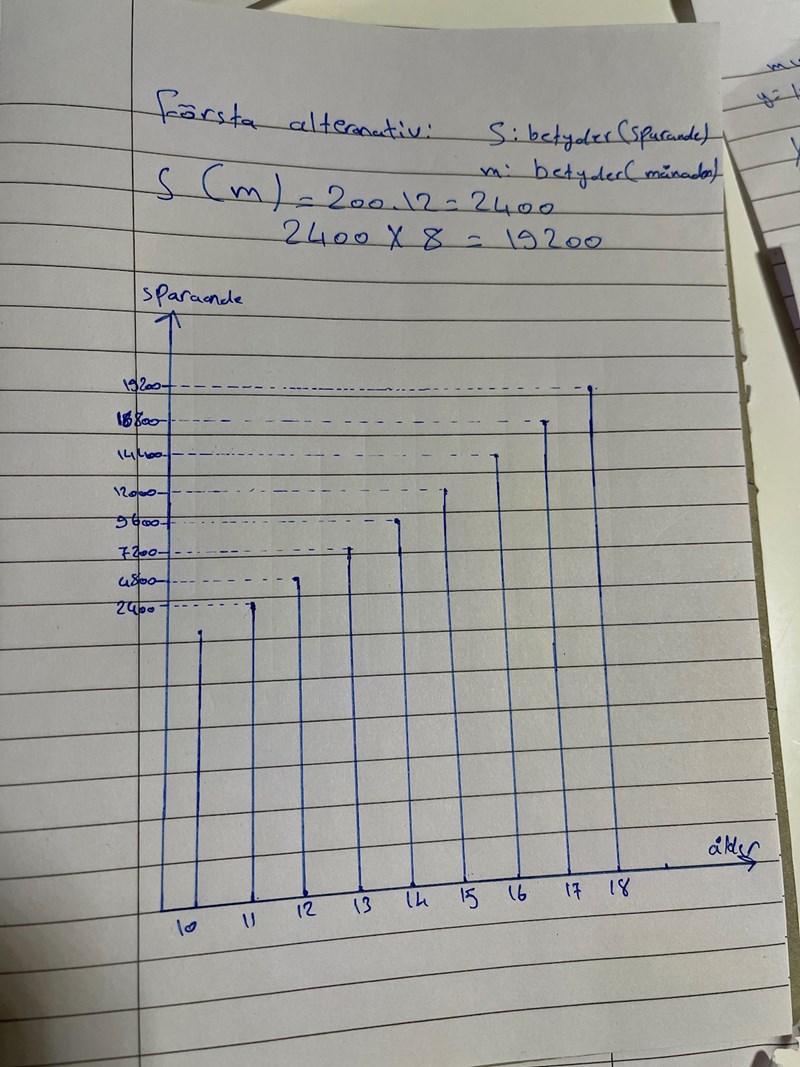 Första alternativ: S: betyder (sparande)
m: betyder (månader)
S (m) = 200.12 = 2400
2400 X 8 = 19200
sparaande
19200
16800
14400
12000
9600
7200
4800
2400
ålder
10 11 12 13 14 15 16 17 18
y=